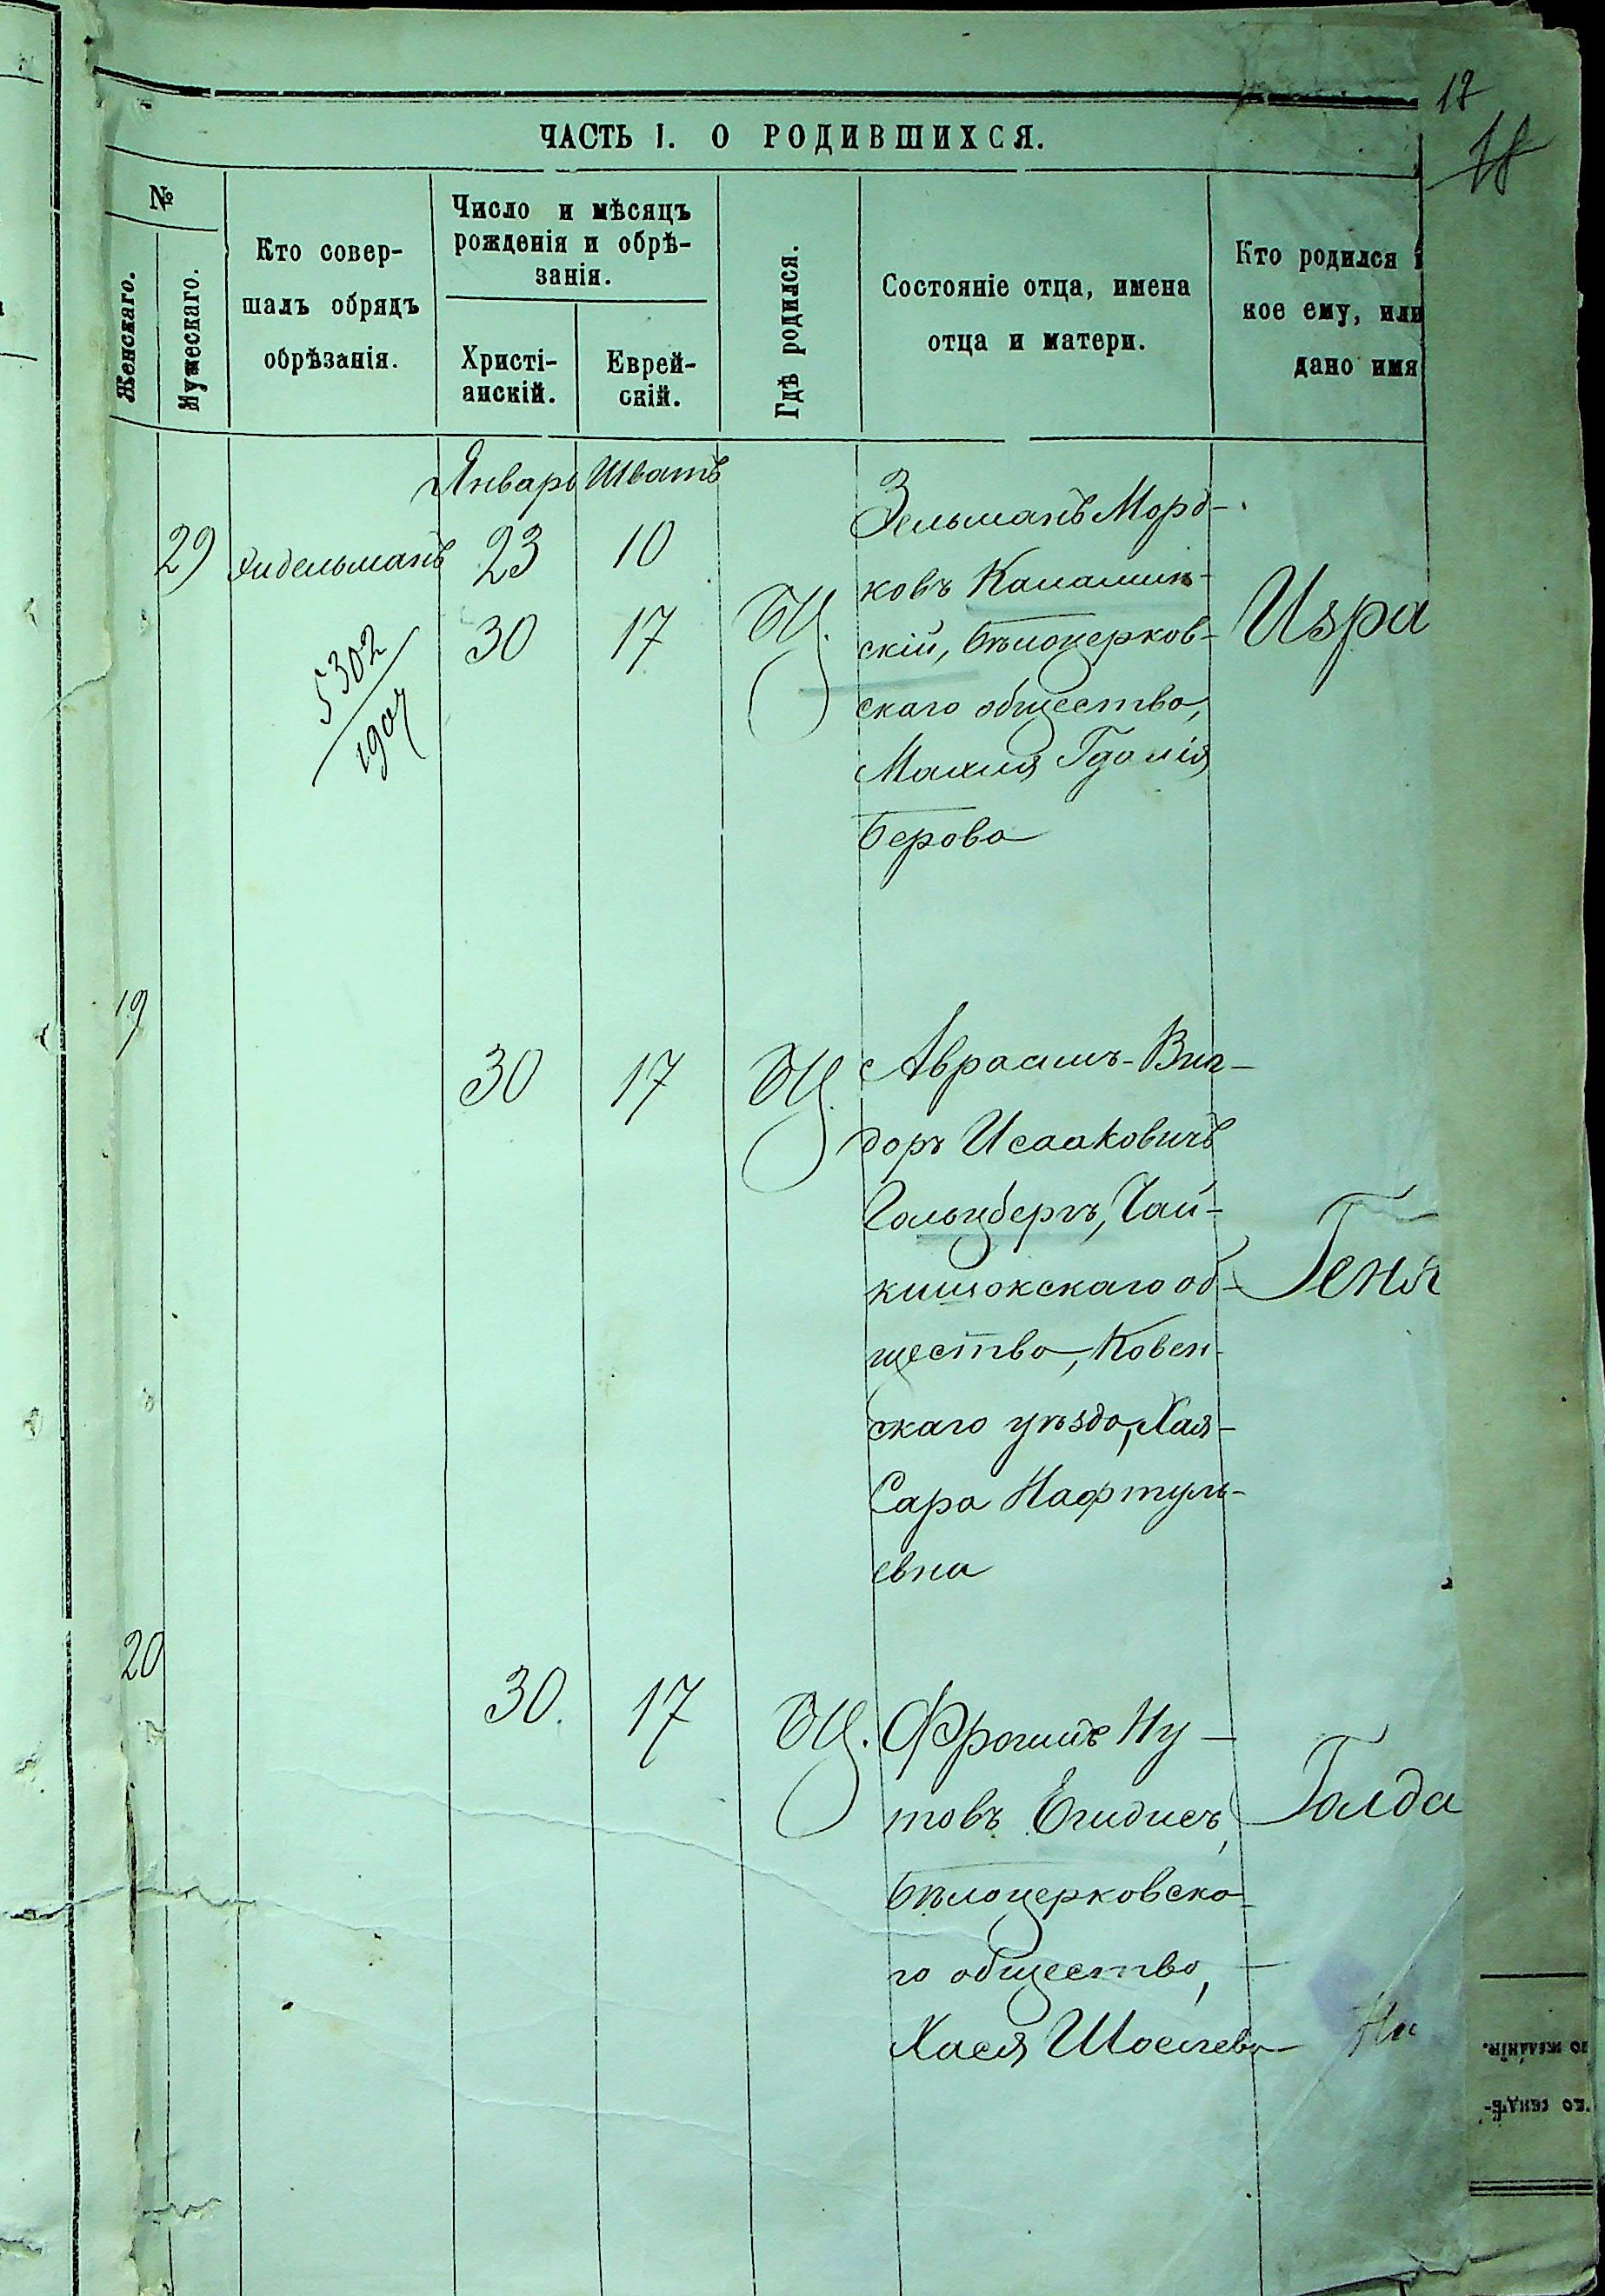 17
18
ЧАСТЬ I. О РОДИВШИХСЯ.
№
Женскаго.
Мужескаго.
Кто совер-
шалъ обрядъ
обрѣзанія.
Число и мѣсяцъ
рожденія и обрѣ-
занія.
Христі-
анскій.
Еврей-
скій.
Гдѣ родился.
Состояніе отца, имена
отца и матери.
Кто родился
кое ему, или
дано имя
Январь Шватъ
29 Эйдельманъ 23 10
30 17
БЦ.
Зельманъ Морд-
ковъ Каламин-
скій, Бѣлоцерков-
скаго общества,
Малия Гдалія
Берова
Изра
5302
1907
19
30 17 БЦ.
Авраамъ-Виг-
доръ Исааковичъ
Гольцбергъ, Чай-
кишокскаго об-
щества, Ковен-
скаго уѣзда, Хая-
Сара Нафтуль-
евна
Геня
20
30 17 БЦ.
Фроимъ Ну-
товъ Егидисъ,
Бѣлоцерковска-
го общества,
Хася Шоелева
Голда